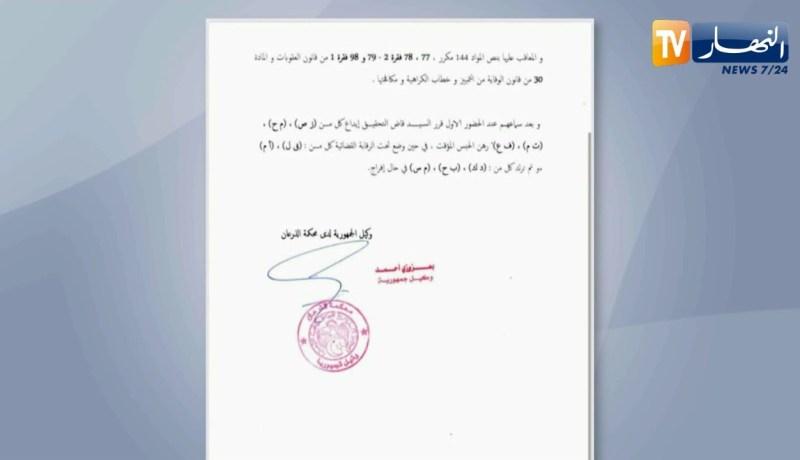 النهار TV
NEWS 7/24
و المعاقب عليها بنص المواد 144 مكرر ، 77 ، 78 فقرة 2 - 79 و 98 فقرة 1 من قانون العقوبات و المادة
30 من قانون الوقاية من التمييز و خطاب الكراهية و مكافحتها .
و بعد سماعهم عند الحضور الاول قرر السيد قاضي التحقيق إيداع كل من (ز ص) ، (م ح) ،
(ث م) ، (ف ع) رهن الحبس المؤقت ، في حين وضع تحت الرقابة القضائية كل من : (ق ل) ، (أ م)
و تم ترك كل من : (د ك) ، (ب ح) ، (م ص) في حال إفراج.
وكيل الجمهورية لدى محكمة الذرعان
بعزوزي أحمد
وكيل جمهورية